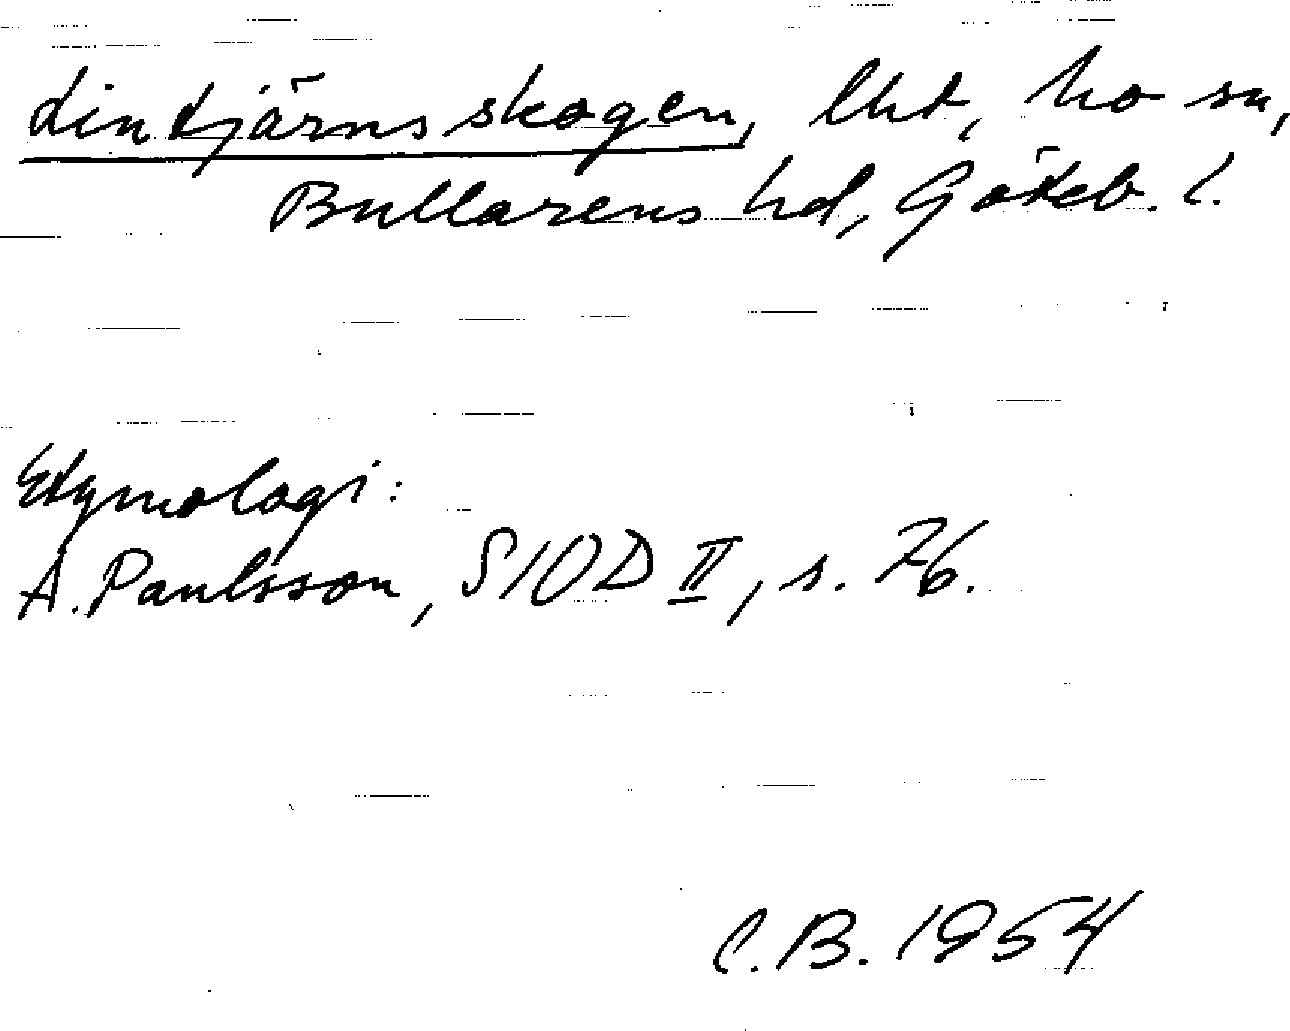 Lintjärnsskogen, lht, Mo sn,
Bullarens hd, Göteb. l.
Etymologi:
A. Paulsson, SIOD II, s. 76.
C.B. 1954